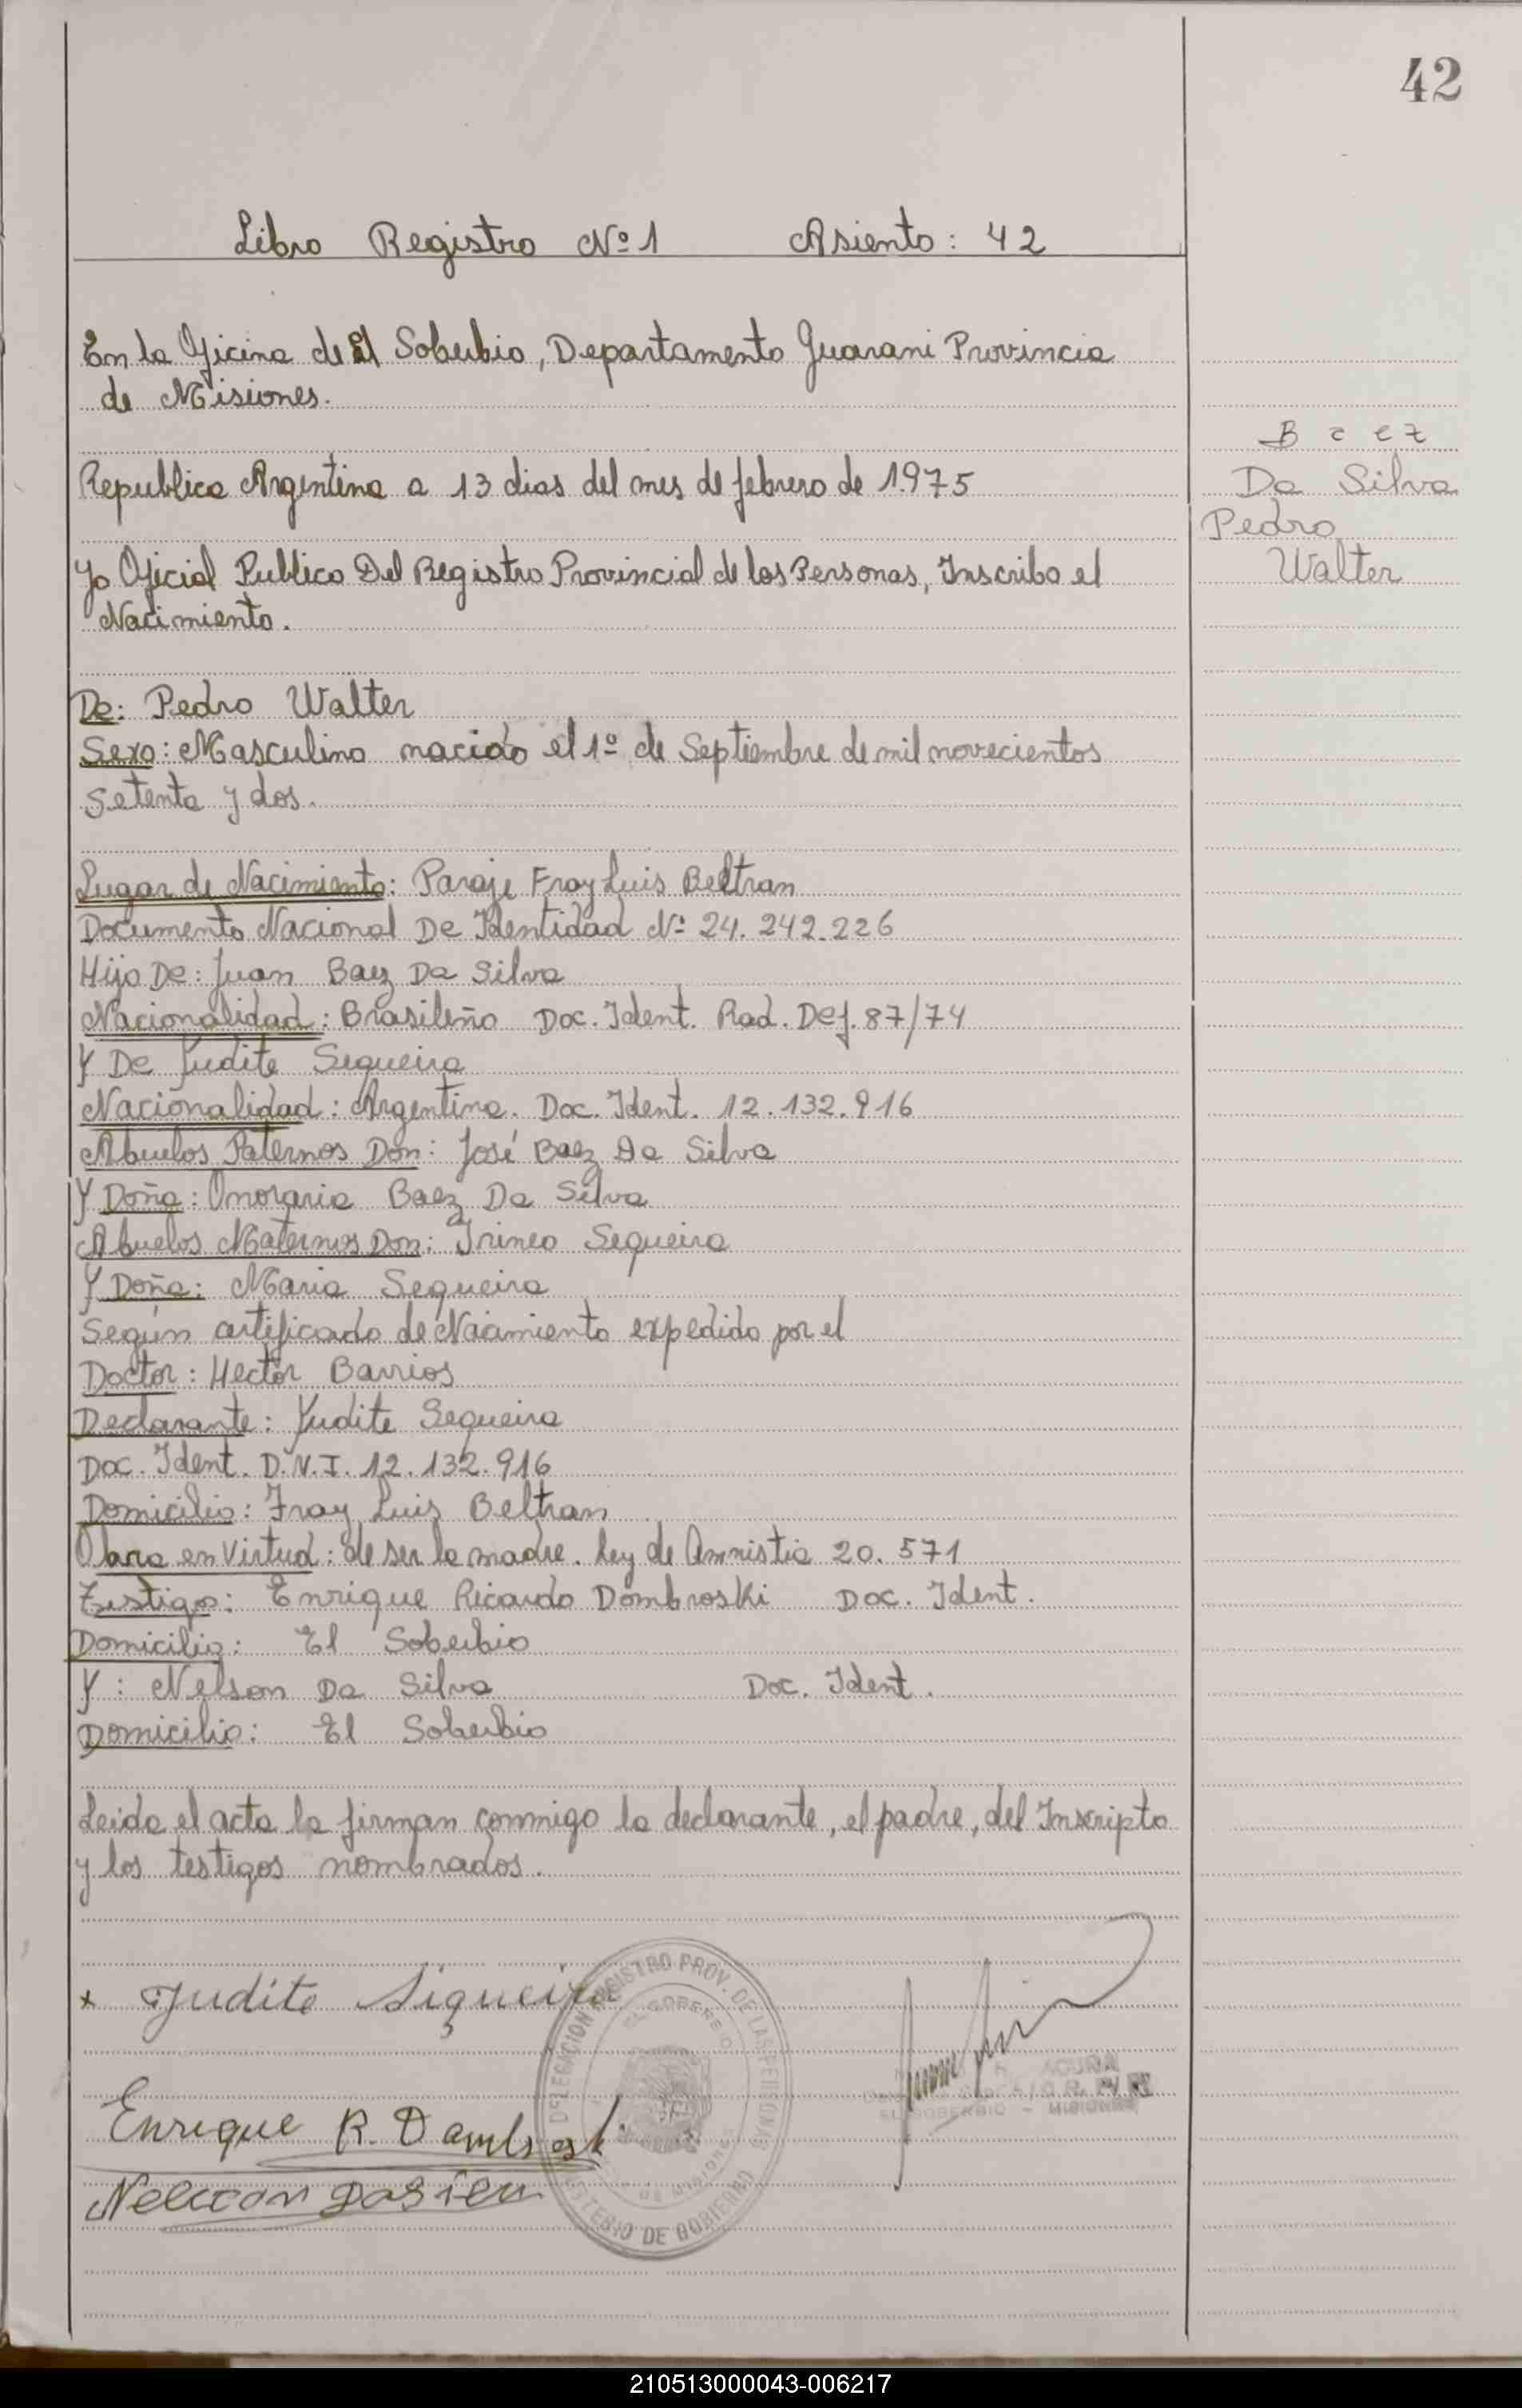 42
Libro Registro Nº 1 Asiento: 42
En la Oficina de El Soberbio, Departamento Guarani Provincia
de Misiones.
Republica Argentina a 13 dias del mes de febrero de 1.975
Yo Oficial Publico Del Registro Provincial de las Personas, Inscribo el
Nacimiento.
Baez
Da Silva
Pedro
Walter
De: Pedro Walter
Sexo: Masculino nacido el 1º de Septiembre de mil novecientos
setenta y dos.
Lugar de Nacimiento: Paraje Fray Luis Beltran
Documento Nacional De Identidad Nº 24.242.226
Hijo De: Juan Baez Da Silva
Nacionalidad: Brasileño Doc. Ident. Rad. Def. 87/74
Y De Yudite Sequeira
Nacionalidad: Argentina. Doc. Ident. 12.132.916
Abuelos Paternos Don: José Baez Da Silva
Y Doña: Onoraria Baez Da Silva
Abuelos Maternos Don: Irineo Sequeira
Y Doña: Maria Sequeira
Según certificado de Nacimiento expedido por el
Doctor: Hector Barrios
Declarante: Yudite Sequeira
Doc. Ident. D.N.I. 12.132.916
Domicilio: Fray Luis Beltran
Obra en Virtud: de ser la madre. Ley de Amnistia 20.571
Testigo: Enrique Ricardo Dombroski Doc. Ident.
Domicilio: El Soberbio
Y: Nelson Da Silva Doc. Ident.
Domicilio: El Soberbio
Leida el acta la firman conmigo la declarante, el padre, del Inscripto
y los testigos nombrados.
x Judite Siqueira
DELEGACION REGISTRO PROV. DE LAS PERSONAS
EL SOBERBIO
MINISTERIO DE GOBIERNO
EL SOBERBIO - MISIONES
Enrique R. Dambroski
210513000043-006217